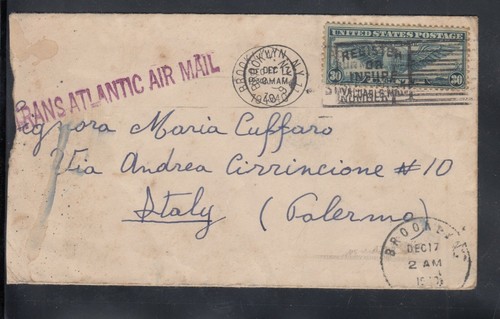 UNITED STATES POSTAGE
30 30
REGISTER
OR
INSURE
VALUABLE MAIL
BROOKLYN, N.Y.
DEC 17
AM
1940
TRANS ATLANTIC AIR MAIL
Signora Maria Cuffaro
Via Andrea Cirrincione #10
Italy (Palermo)
BROOKLYN
DEC 17
2 AM